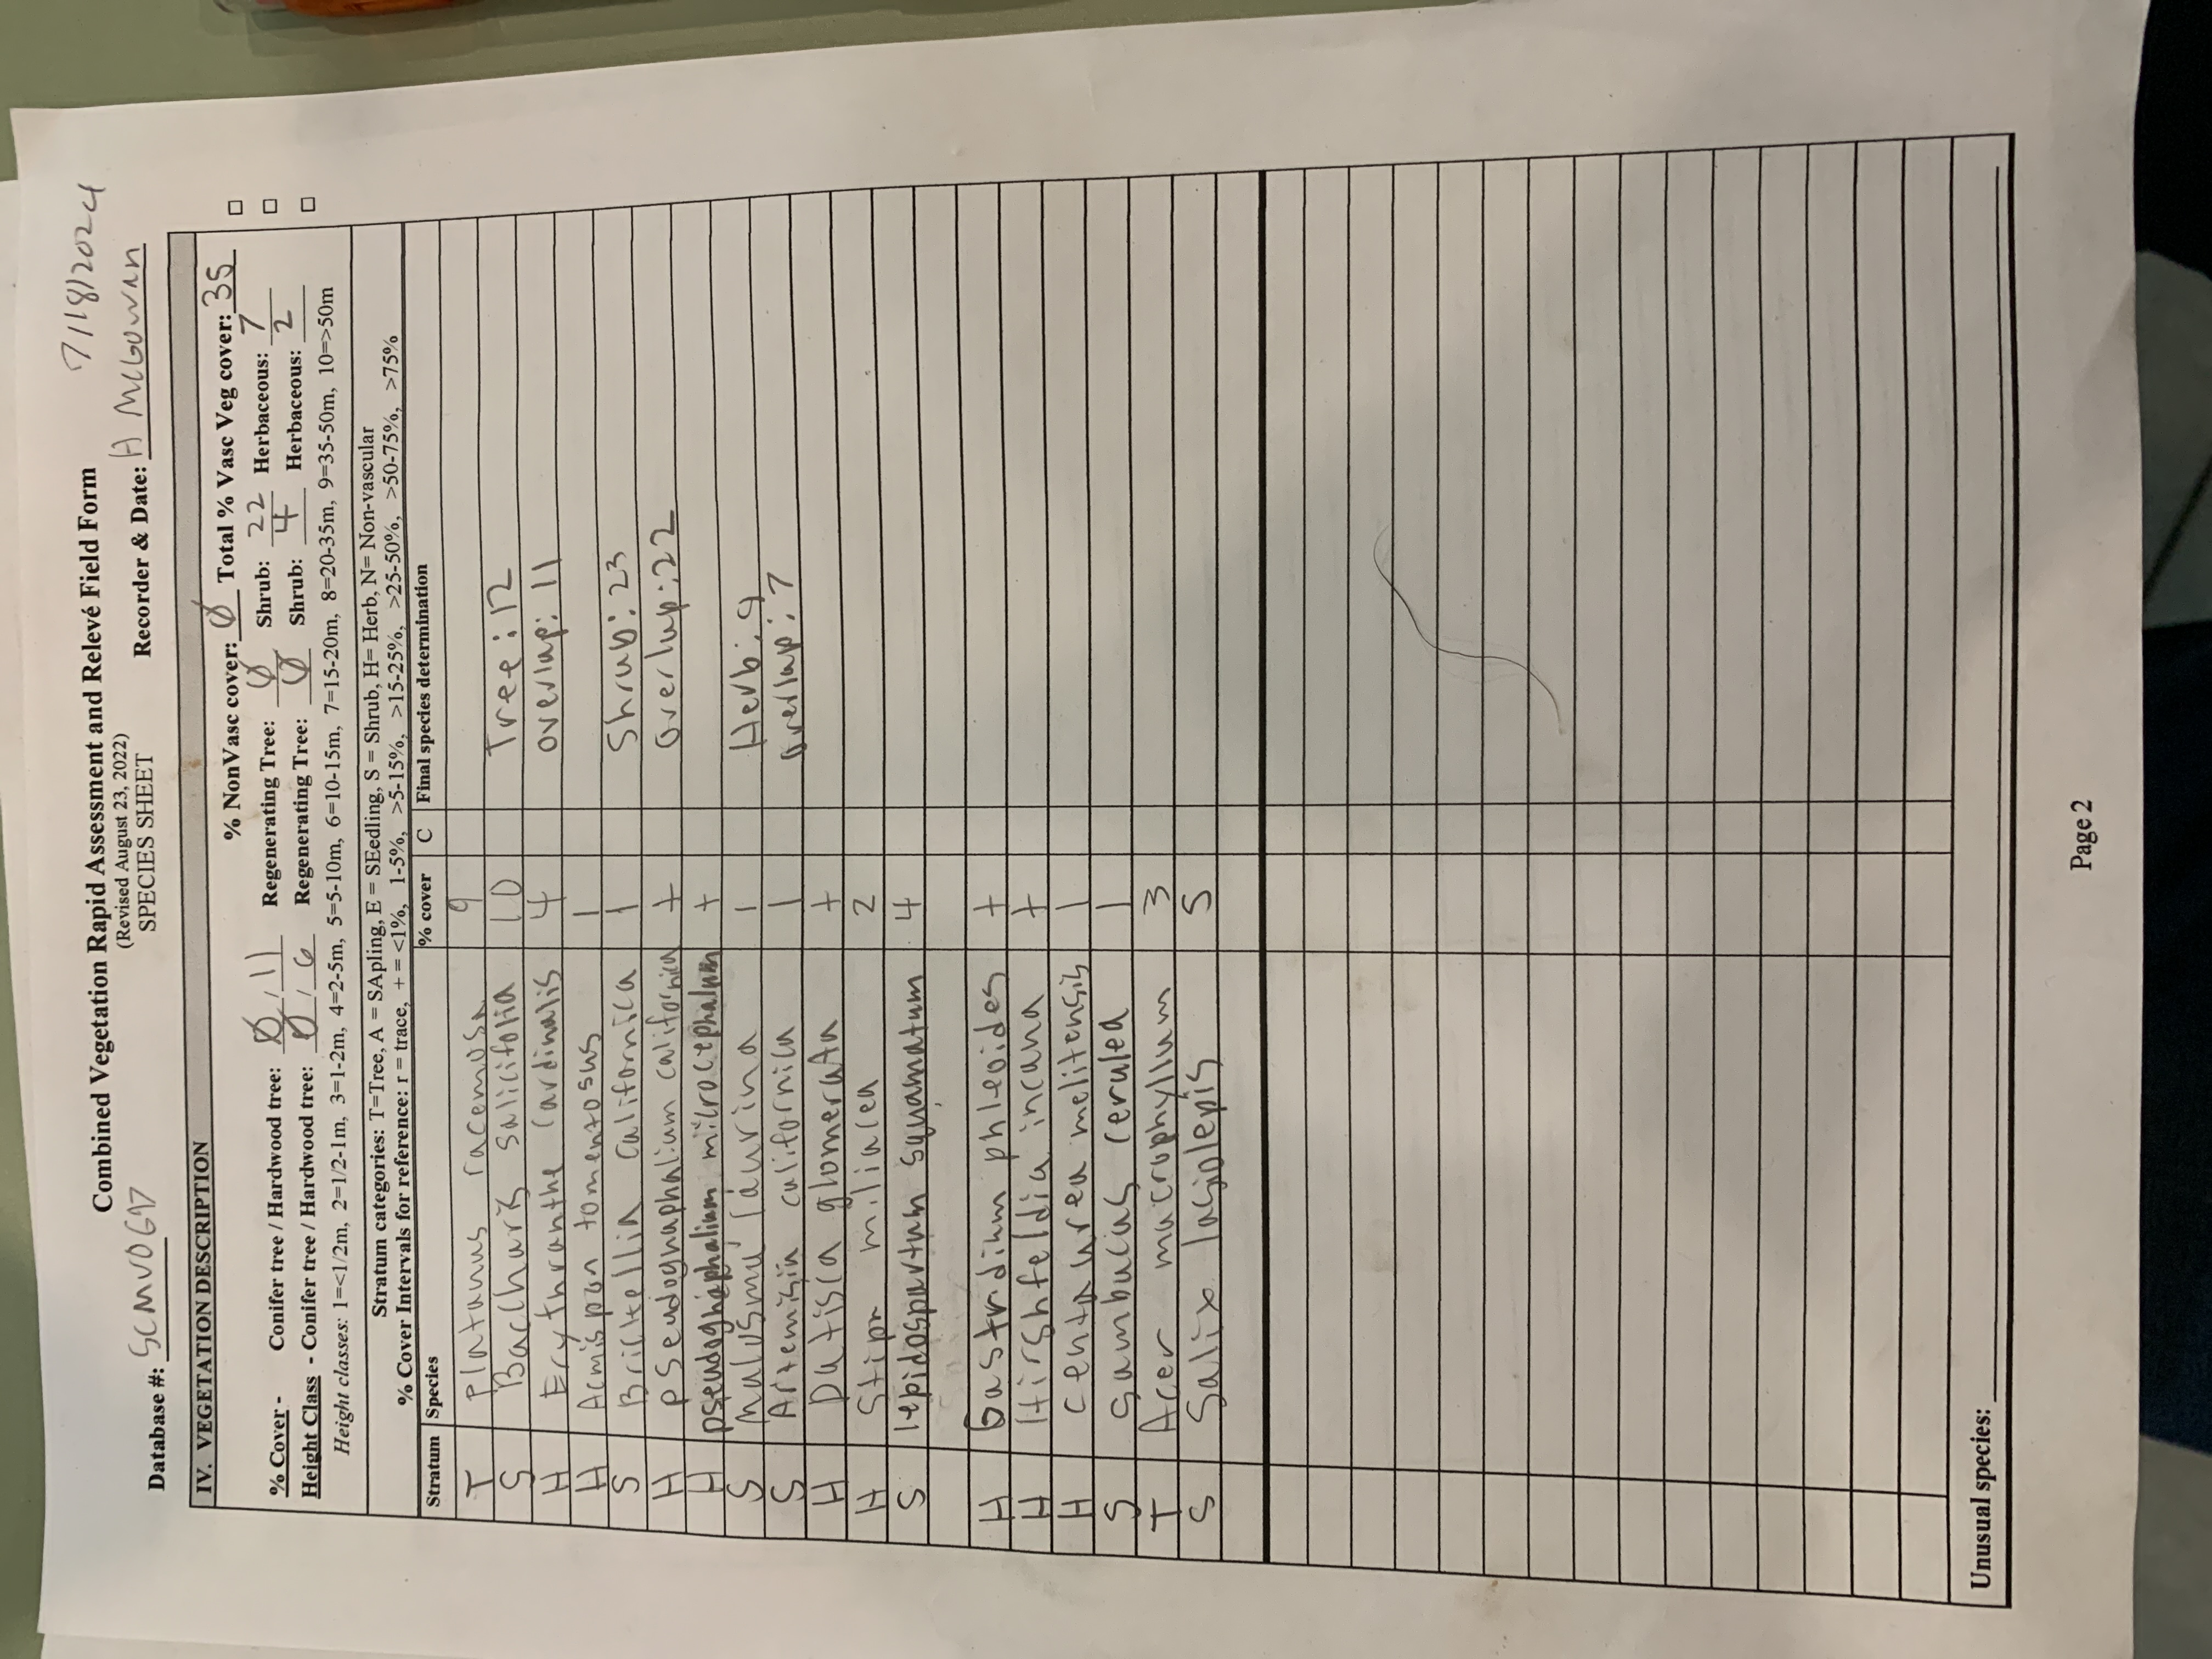 7/18/2024
Combined Vegetation Rapid Assessment and Relevé Field Form
(Revised August 23, 2022)
SPECIES SHEET
Database #: SCMV0697 Recorder & Date: A McGowan
IV. VEGETATION DESCRIPTION
% NonVasc cover: Ø Total % Vasc Veg cover: 35 □
% Cover - Conifer tree / Hardwood tree: Ø / 11 Regenerating Tree: Ø Shrub: 22 Herbaceous: 7 □
Height Class - Conifer tree / Hardwood tree: Ø / 6 Regenerating Tree: Ø Shrub: 4 Herbaceous: 2 □
Height classes: 1=<1/2m, 2=1/2-1m, 3=1-2m, 4=2-5m, 5=5-10m, 6=10-15m, 7=15-20m, 8=20-35m, 9=35-50m, 10=>50m
Stratum categories: T=Tree, A = SApling, E = SEedling, S = Shrub, H= Herb, N= Non-vascular
% Cover Intervals for reference: r = trace, + = <1%, 1-5%, >5-15%, >15-25%, >25-50%, >50-75%, >75%
Stratum Species % cover C Final species determination
T Platanus racemosa 9
S Baccharis salicifolia 10 Tree: 12
H Erythranthe cardinalis 4 overlap: 11
H Acmispon tomentosus 1
S Brictellia californica 1 Shrub: 23
H pseudognaphalium californica + Overlap: 22
H pseudognaphalium microcephalum +
S Malosma laurina 1 Herb: 9
S Artemisia californica 1 Overlap: 7
H Datisca glomerata +
H Stipa miliacea 2
S lepidospartum squamatum 4
H Gastridium phleoides +
H Hirshfeldia incana +
H centaurea melitensis 1
S Sambucus cerulea 1
T Acer macrophyllum 3
S Salix lasiolepis 5
Unusual species:
Page 2